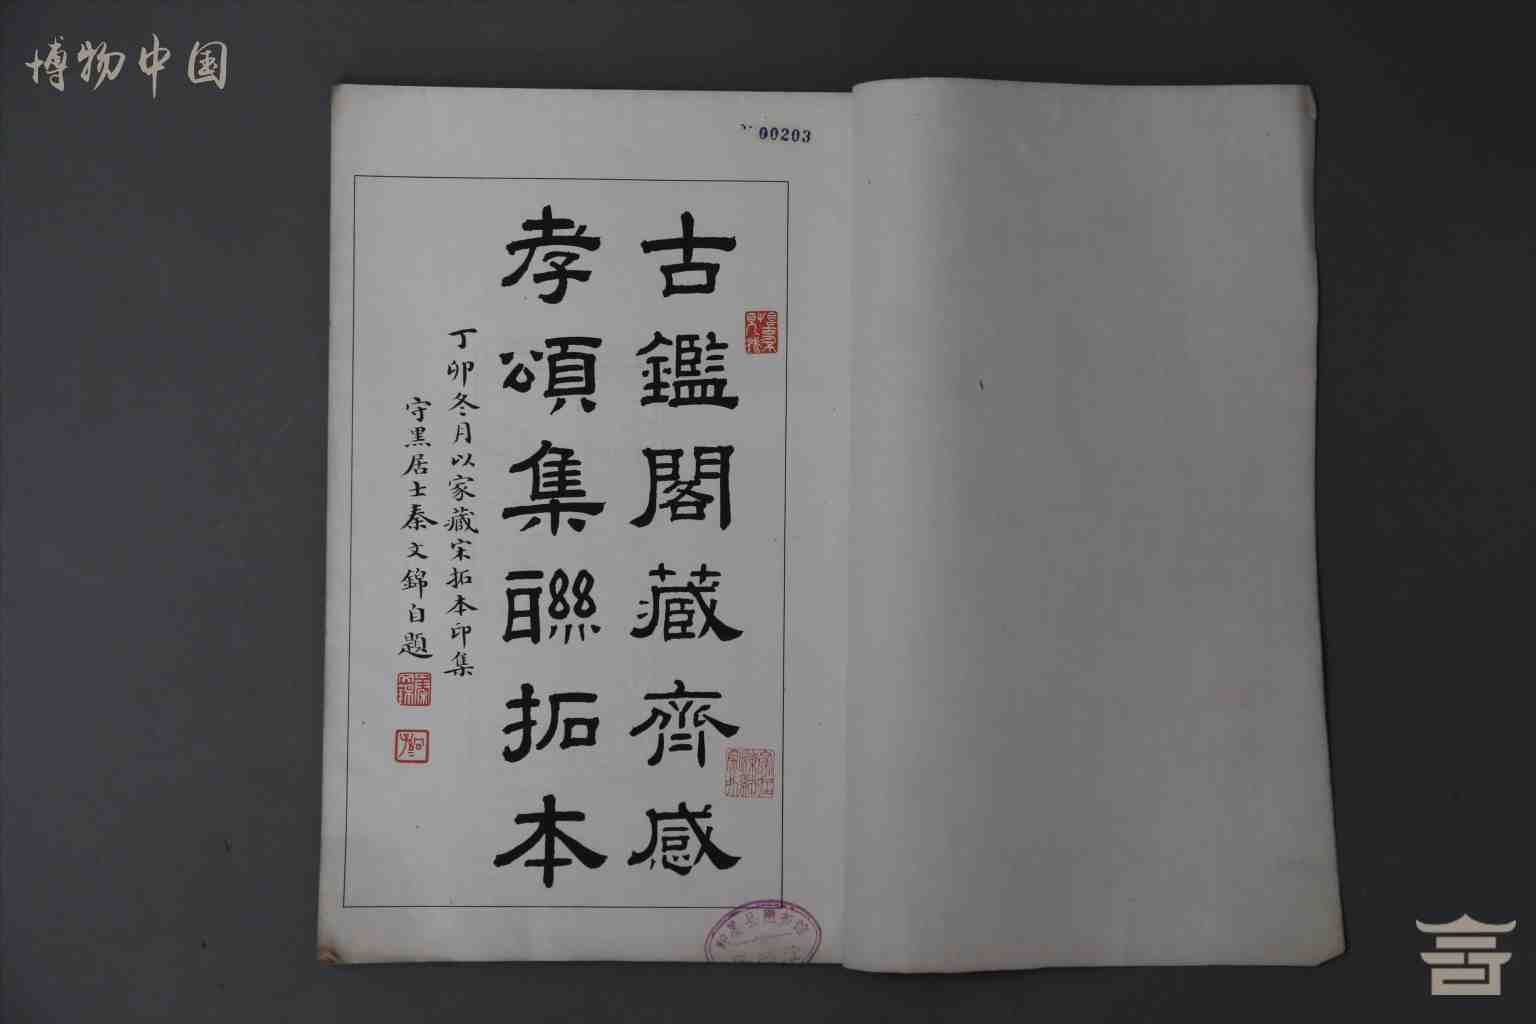 博物中国
00203
古鑑閣藏齊感
孝頌集聯拓本
丁卯冬月以家藏宋拓本印集
守黑居士秦文錦自題